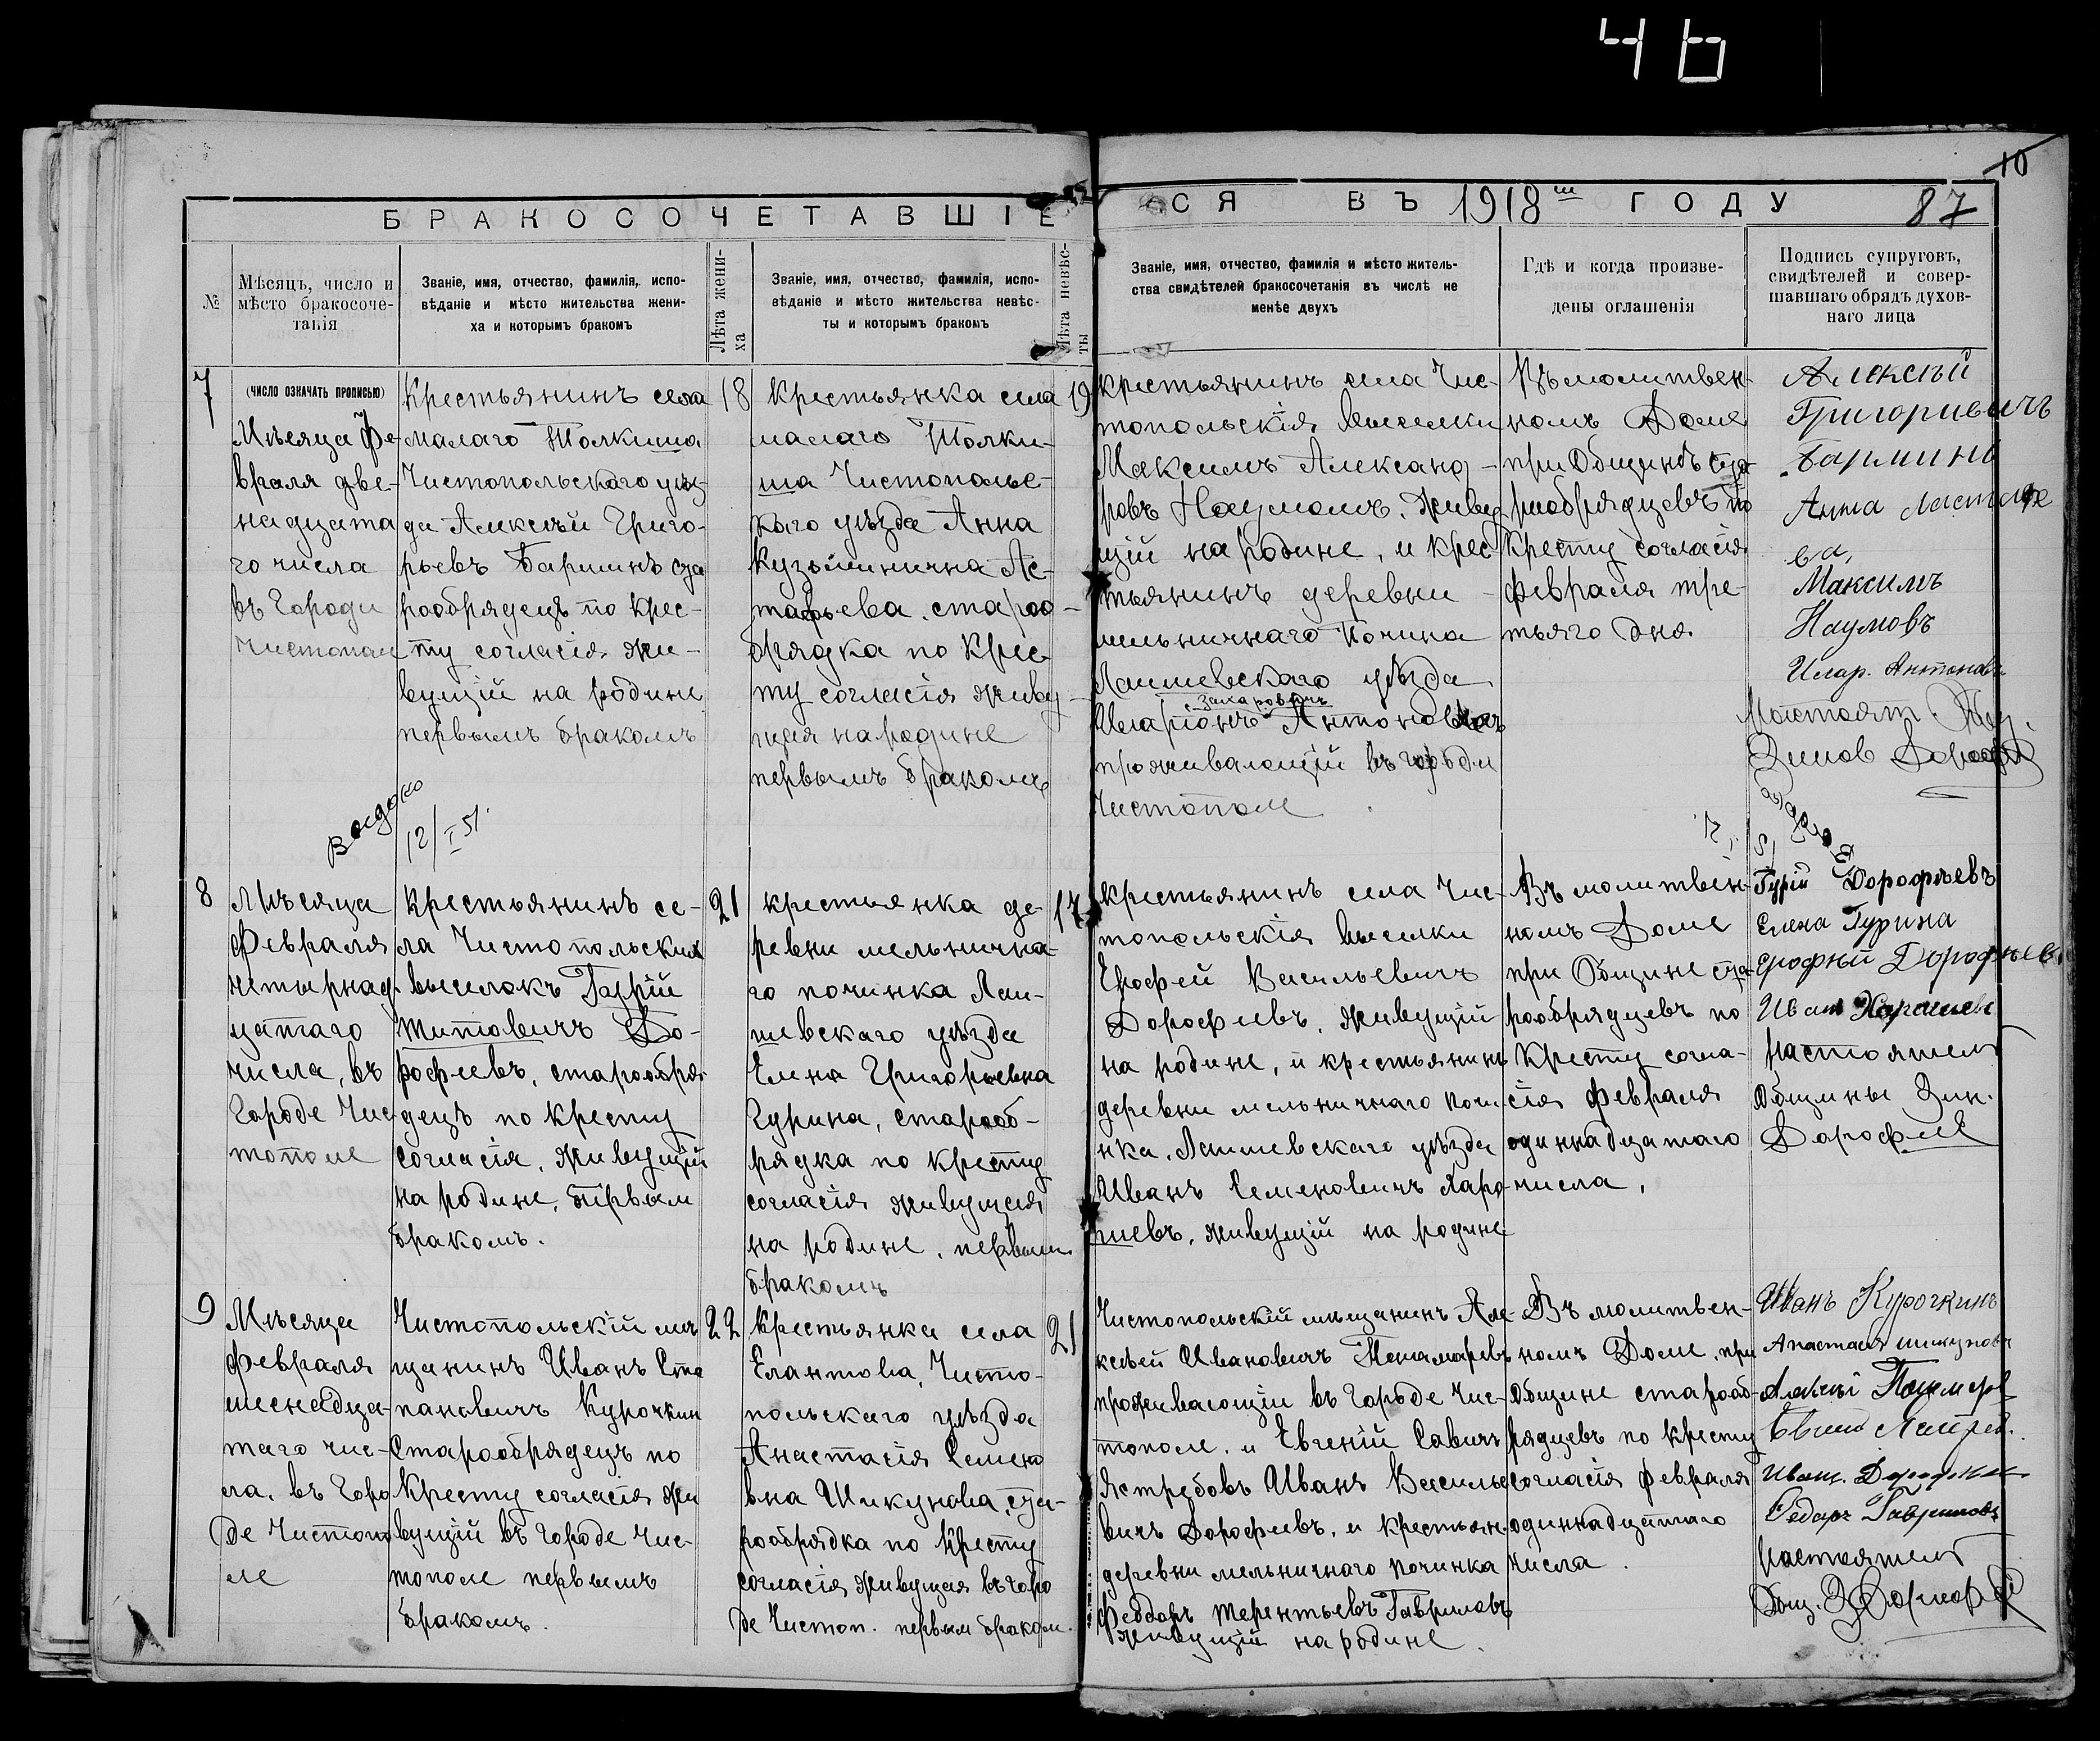 46
10
БРАКОСОЧЕТАВШІЕ
СЯ ВЪ 1918ш ГОДУ
87
№
Мѣсяцъ, число и
мѣсто бракосоче-
танія
Званіе, имя, отчество, фамилія, испо-
вѣданіе и мѣсто жительства жени-
ха и которымъ бракомъ
Лѣта жени-
ха
Званіе, имя, отчество, фамилія, испо-
вѣданіе и мѣсто жительства невѣс-
ты и которымъ бракомъ
Лѣта невѣс-
ты
Званіе, имя, отчество, фамилія и мѣсто житель-
ства свидѣтелей бракосочетанія въ числѣ не
менѣе двухъ
Гдѣ и когда произве-
дены оглашенія
Подпись супруговъ,
свидѣтелей и совер-
шавшаго обрядъ духов-
наго лица
7
(ЧИСЛО ОЗНАЧАТЬ ПРОПИСЬЮ)
Мѣсяца Фе-
враля две-
надцата
го числа
въ Городи
Чистопол
Крестьянинъ села
малаго Толкиша
Чистопольскаго уѣз-
да Алексѣй Григо-
рьевъ Барминъ ста
рообрядецъ по крес-
ту согласія жи-
вущій на родине
первымъ бракомъ
18
крестьянка села
малаго Толки-
ша Чистополь-
каго уѣзда Анна
Кузьминична Ас-
тафьева, староо-
брядка по Крес
ту согласія живу-
щая на родине
первымъ бракомъ
19
крестьянинъ села Чис-
топольскія Выселки
Максимъ Александ-
ровъ Наумовъ. Живу
щій на родине, и крес-
тьянинъ деревни
мельничнаго Почина
Лаишевскаго уѣзда
Захаровичъ
Иларіонъ Антоновъ
проживающій въ городи
Чистополе
Въ молитвен-
номъ Доме
при Общинѣ Ста-
рообрядцевъ по
Кресту согласія
февраля тре-
тьяго дня.
Алексѣй
Григориевичъ
Барминъ
Анна Астафе
ва,
Максимъ
Наумовъ
Илар. Антоновъ
Зинов Дороф
Выдано
12/I 51.
8
Мѣсяца
Февраля
четырнад-
цатаго
числа, въ
Городе Чис
тополе
Крестьянинъ се-
ла Чистопольских
выселокъ Гурій
Титовичъ До-
рофеевъ, старообря
децъ по кресту
согласія, живущій
на родине, первым
бракомъ.
21
крестьянка де-
ревни мельнична-
го починка Лаи-
шевскаго уѣзда
Елена Григорьевна
Гурина, старооб-
рядка по кресту
согласія живущая
на родине, первым
бракомъ
17
крестьянинъ села Чис-
топольскія выселки
Ерофей Васильевичъ
Дорофеевъ, живущій
на родине, и крестьянинъ
деревни мельничнаго почи-
нка, Лаишевскаго уѣзда
Иванъ Семеновичъ Харо-
шевъ, живущій на родине
Въ молитвен-
номъ Доме
при Общине ста-
рообрядцевъ по
Кресту согла-
сія февраля
одиннадцатаго
числа,
Гурій Дорофѣевъ
Елена Гурина
Ерофѣй Дорофѣев
Иван
настоятель
Общины Зин.
Дорофеев
9
Мѣсяца
февраля
шеснадца-
таго чис-
ла, въ Горо
де Чистопо
ле
Чистопольскій мѣ
щанинъ Иванъ Сте
пановичъ Курочкин
Старообрядецъ по
Кресту согласія жи
вущій въ Городе Чис-
тополе первымъ
бракомъ.
22
Крестьянка села
Елантова, Чисто-
польскаго уѣзда
Анастасія Семено
вна Шикунова, ста-
рообрядка по Кресту
согласія живущая въ горо
де Чистоп. первым браком.
21
Чистопольскій мѣщанинъ Але-
ксѣй Ивановичъ Понамаревъ
проживающій въ Городе Чис-
тополе. и Евгеній Савичъ
Ястребовъ Иванъ Василье
вичъ Дорофеевъ, и крестьян.
деревни мельничнаго починка
Феодоръ Терентьевъ Гавриловъ
живущій на родине.
Въ молитвен-
номъ Доме, при
Общине старооб-
рядцевъ по кресту
согласія февраля
одиннадцатаго
числа.
Иванъ Курочкинъ
Анастасія Шикунова
Иван. Дорофее
Федоръ Гавриловъ
настоятель
Общ. З Дороф